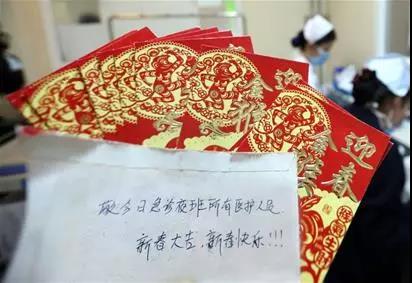 迎春
致今日急诊夜班所有医护人员
新春大吉,新春快乐!!!